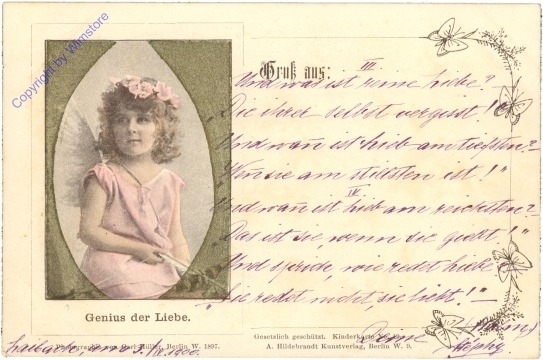 Copyright by Wimstore
Gruß aus:
III.
Und was ist reine Liebe?
"Die ihrer selbst vergisst!"
Und wañ ist Lieb am tiefsten?
"Wen sie am stillsten ist!"
IV.
Und wañ ist Lieb am reichsten?
"Das ist sie, wenn sie giebt!"
Und sprich, wie redet Liebe?
"Sie redet nicht, sie liebt!"
Genius der Liebe.
Photographie von Müller, Berlin W. 1897.
Gesetzlich geschützt. Kinderkarte
A. Hildebrandt Kunstverlag, Berlin W. 9.
Laibach, am